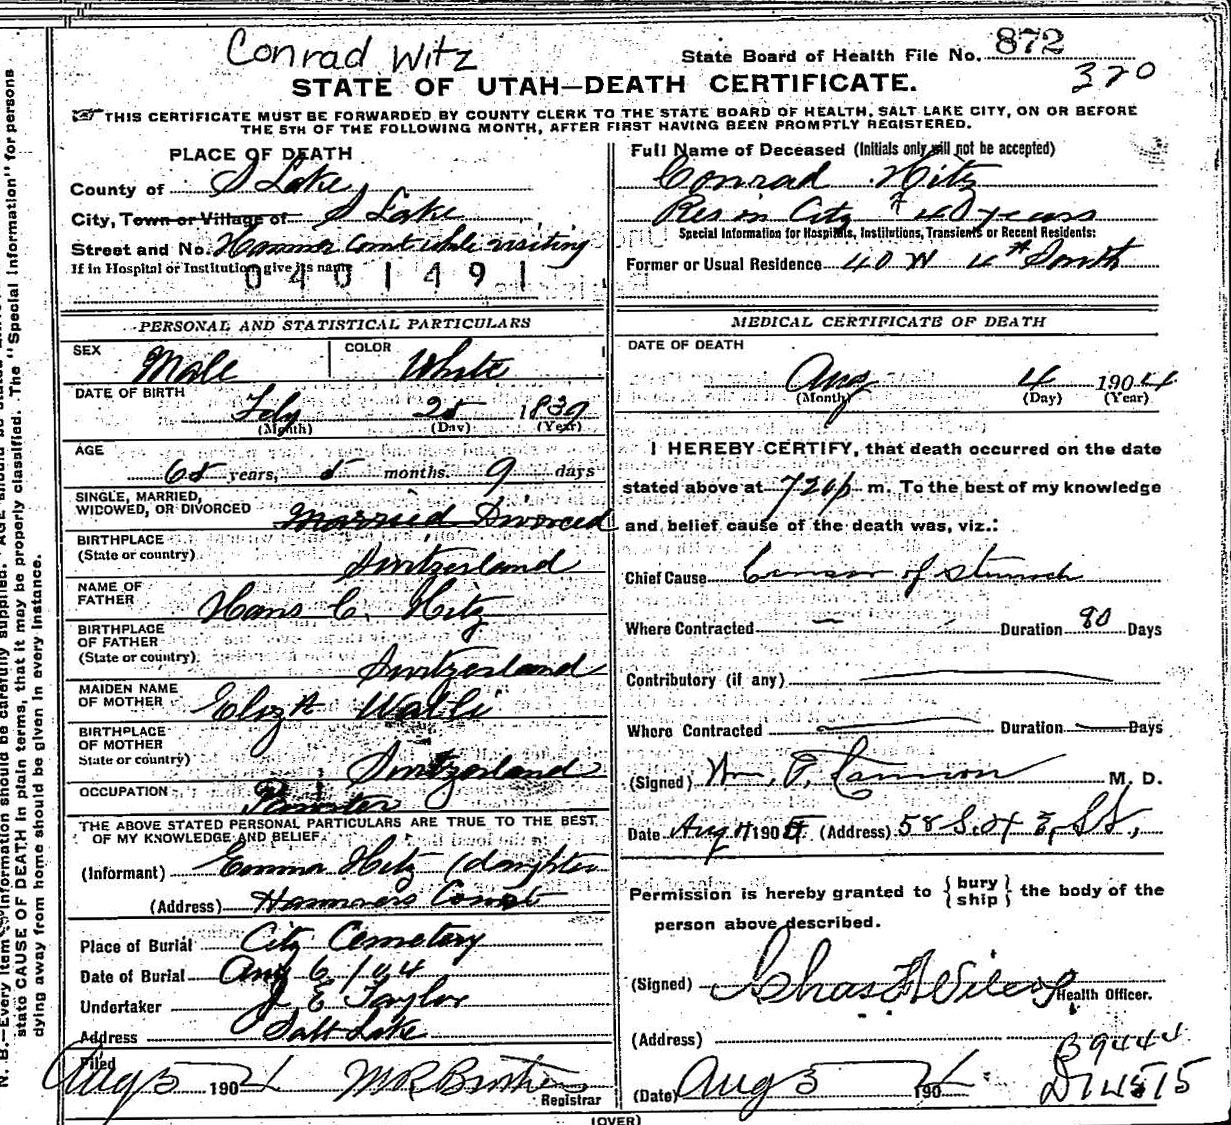 Conrad Witz
State Board of Health File No. 872
370
STATE OF UTAH—DEATH CERTIFICATE.
THIS CERTIFICATE MUST BE FORWARDED BY COUNTY CLERK TO THE STATE BOARD OF HEALTH, SALT LAKE CITY, ON OR BEFORE
THE 5TH OF THE FOLLOWING MONTH, AFTER FIRST HAVING BEEN PROMPTLY REGISTERED.
PLACE OF DEATH
County of S Lake
City, Town or Village of S Lake
Street and No. Hammer Court while visiting
If in Hospital or Institution, give its name
0401491
Full Name of Deceased (Initials only will not be accepted)
Conrad Hitz
Res in City 40 years
Special Information for Hospitals, Institutions, Transients or Recent Residents:
Former or Usual Residence 40 W 4th South
PERSONAL AND STATISTICAL PARTICULARS
SEX Male
COLOR White
DATE OF BIRTH
Feby 25 1839
(Month) (Day) (Year)
AGE
65 years, 5 months. 9 days
SINGLE, MARRIED,
WIDOWED, OR DIVORCED Married Divorced
BIRTHPLACE
(State or country) Switzerland
NAME OF
FATHER Hans C. Hitz
BIRTHPLACE
OF FATHER
(State or country) Switzerland
MAIDEN NAME
OF MOTHER Elizth Walli
BIRTHPLACE
OF MOTHER
State or country) Switzerland
OCCUPATION
THE ABOVE STATED PERSONAL PARTICULARS ARE TRUE TO THE BEST
OF MY KNOWLEDGE AND BELIEF.
(Informant) Emma Hitz (daughter
(Address) Hammers Court
Place of Burial City Cemetery
Date of Burial Aug 6/04
Undertaker J E Taylor
Address Salt Lake
Filed
Aug 5 1904 M R
Registrar
MEDICAL CERTIFICATE OF DEATH
DATE OF DEATH
Aug 4 1904
(Month) (Day) (Year)
I HEREBY CERTIFY, that death occurred on the date
stated above at 720 p m. To the best of my knowledge
and belief cause of the death was, viz.:
Chief Cause Cancer of Stomach
Where Contracted Duration 90 Days
Contributory (if any)
Where Contracted Duration Days
(Signed) Wm. T. Cannon M. D.
Date Aug 4 1904 (Address) 58 S. 4 E, St,
Permission is hereby granted to {bury
ship} the body of the
person above described.
(Signed) Chas F Wilcox
Health Officer.
(Address)
B9444
D14575
(Date) Aug 5 1904
(OVER)
N. B.—Every item of information should be carefully supplied. AGE should be stated
state CAUSE OF DEATH in plain terms, that it may be properly classified. The "Special Information" for persons
dying away from home should be given in every instance.